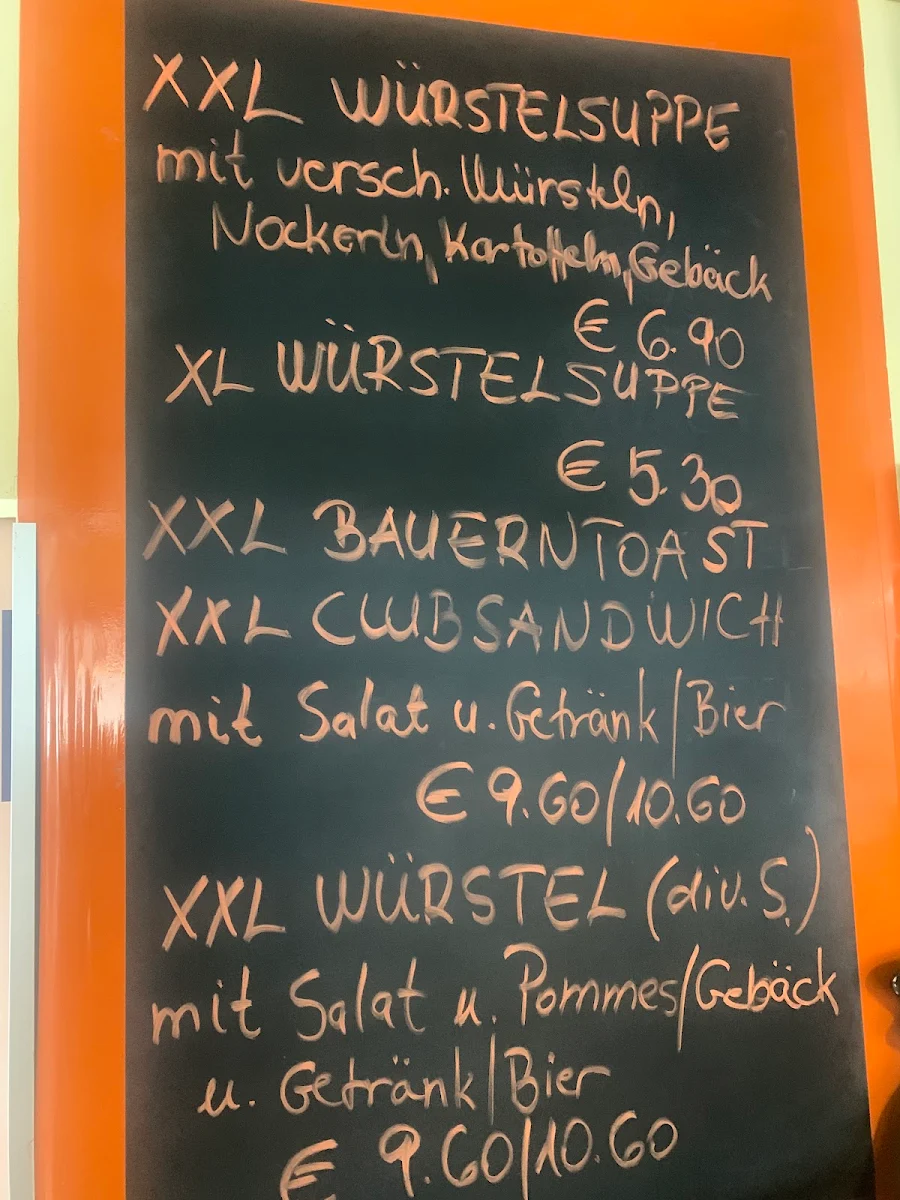 XXL WÜRSTELSUPPE
mit versch. Würsteln,
Nockerln, Kartoffeln, Gebäck
€ 6.90
XL WÜRSTELSUPPE
€ 5.30
XXL BAUERNTOAST
XXL CLUBSANDWICH
mit Salat u. Getränk/Bier
€ 9.60/10.60
XXL WÜRSTEL (div. S.)
mit Salat u. Pommes/Gebäck
u. Getränk/Bier
€ 9.60/10.60